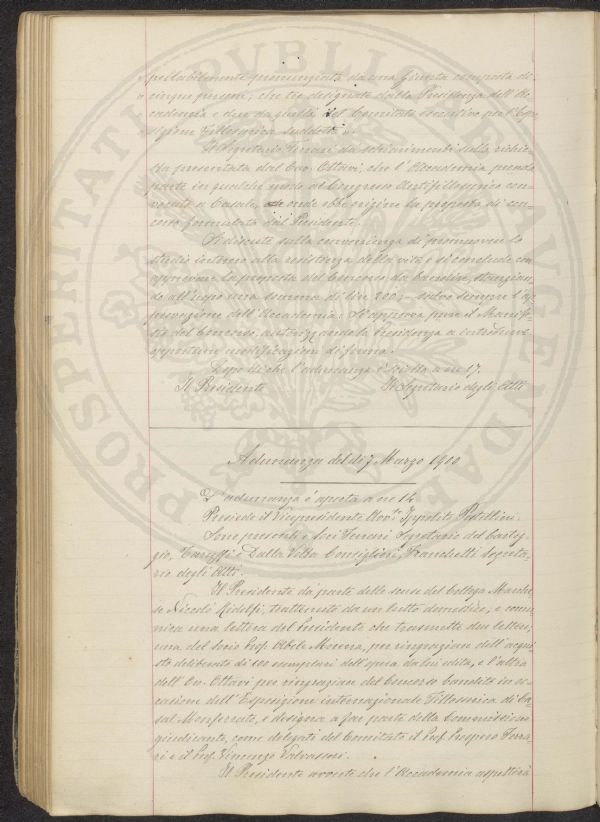 spettabilmente pronunziata da una Giunta composta di
cinque persone, che tre designate dalla Presidenza dell'Ac-
cademia e due da quella del Comitato esecutivo per l'Espo-
sizione fillosserica suddetta".
Il Segretario Ferrari dà schiarimenti sulla richie-
sta presentata dal Cav. Ottavi, che l'Accademia prenda
parte in qualche modo al Congresso Antifillosserico con-
vocato a Casale, onde ebbe origine la proposta di con-
corso formulata dal Presidente.
Si discute sulla convenienza di promuovere lo
studio intorno alla resistenza della vite e si conclude con
approvare la proposta del Concorso da bandire, stanzian-
do all'uopo una somma di Lire 200,- salvo sempre l'ap-
provazione dell'Accademia. Si approva pure il Manife-
sto del Concorso, autorizzando la Presidenza a introdurre
opportune modificazioni di forma.
Dopo di che l'adunanza è sciolta a ore 17.
Il Presidente Il Segretario degli Atti
Adunanza del dì 7 Marzo 1900
L'adunanza è aperta a ore 14.
Presiede il Vicepresidente Avv.to Ippolito Pestellini.
Sono presenti i Soci Ferrari Segretario del Carteg-
gio, Caruzzi e Dalla Volta Consiglieri, Franchetti Segreta-
rio degli Atti.
Il Presidente dà parte delle scuse del Collega Marche-
se Niccolò Ridolfi, trattenuto da un lutto domestico, e comu-
nica una lettera del Presidente che trasmette due lettere,
una del Socio Prof. Abile Morena, per ringraziare dell'acqui-
sto deliberato di 100 esemplari dell'opera da lui edita, e l'altra
dell'On. Ottavi per ringraziare del Concorso bandito in oc-
casione dell'Esposizione internazionale Fillosserica di Ca-
sal Monferrato, e designa a far parte della Commissione
giudicante, come delegati del Comitato il Prof. Prospero Ferra-
ri e il Prof. Vincenzo Valvassori.
Il Presidente avverte che l'Accademia aspetterà
PROSPERITATI PVBLICAE AVGENDAE